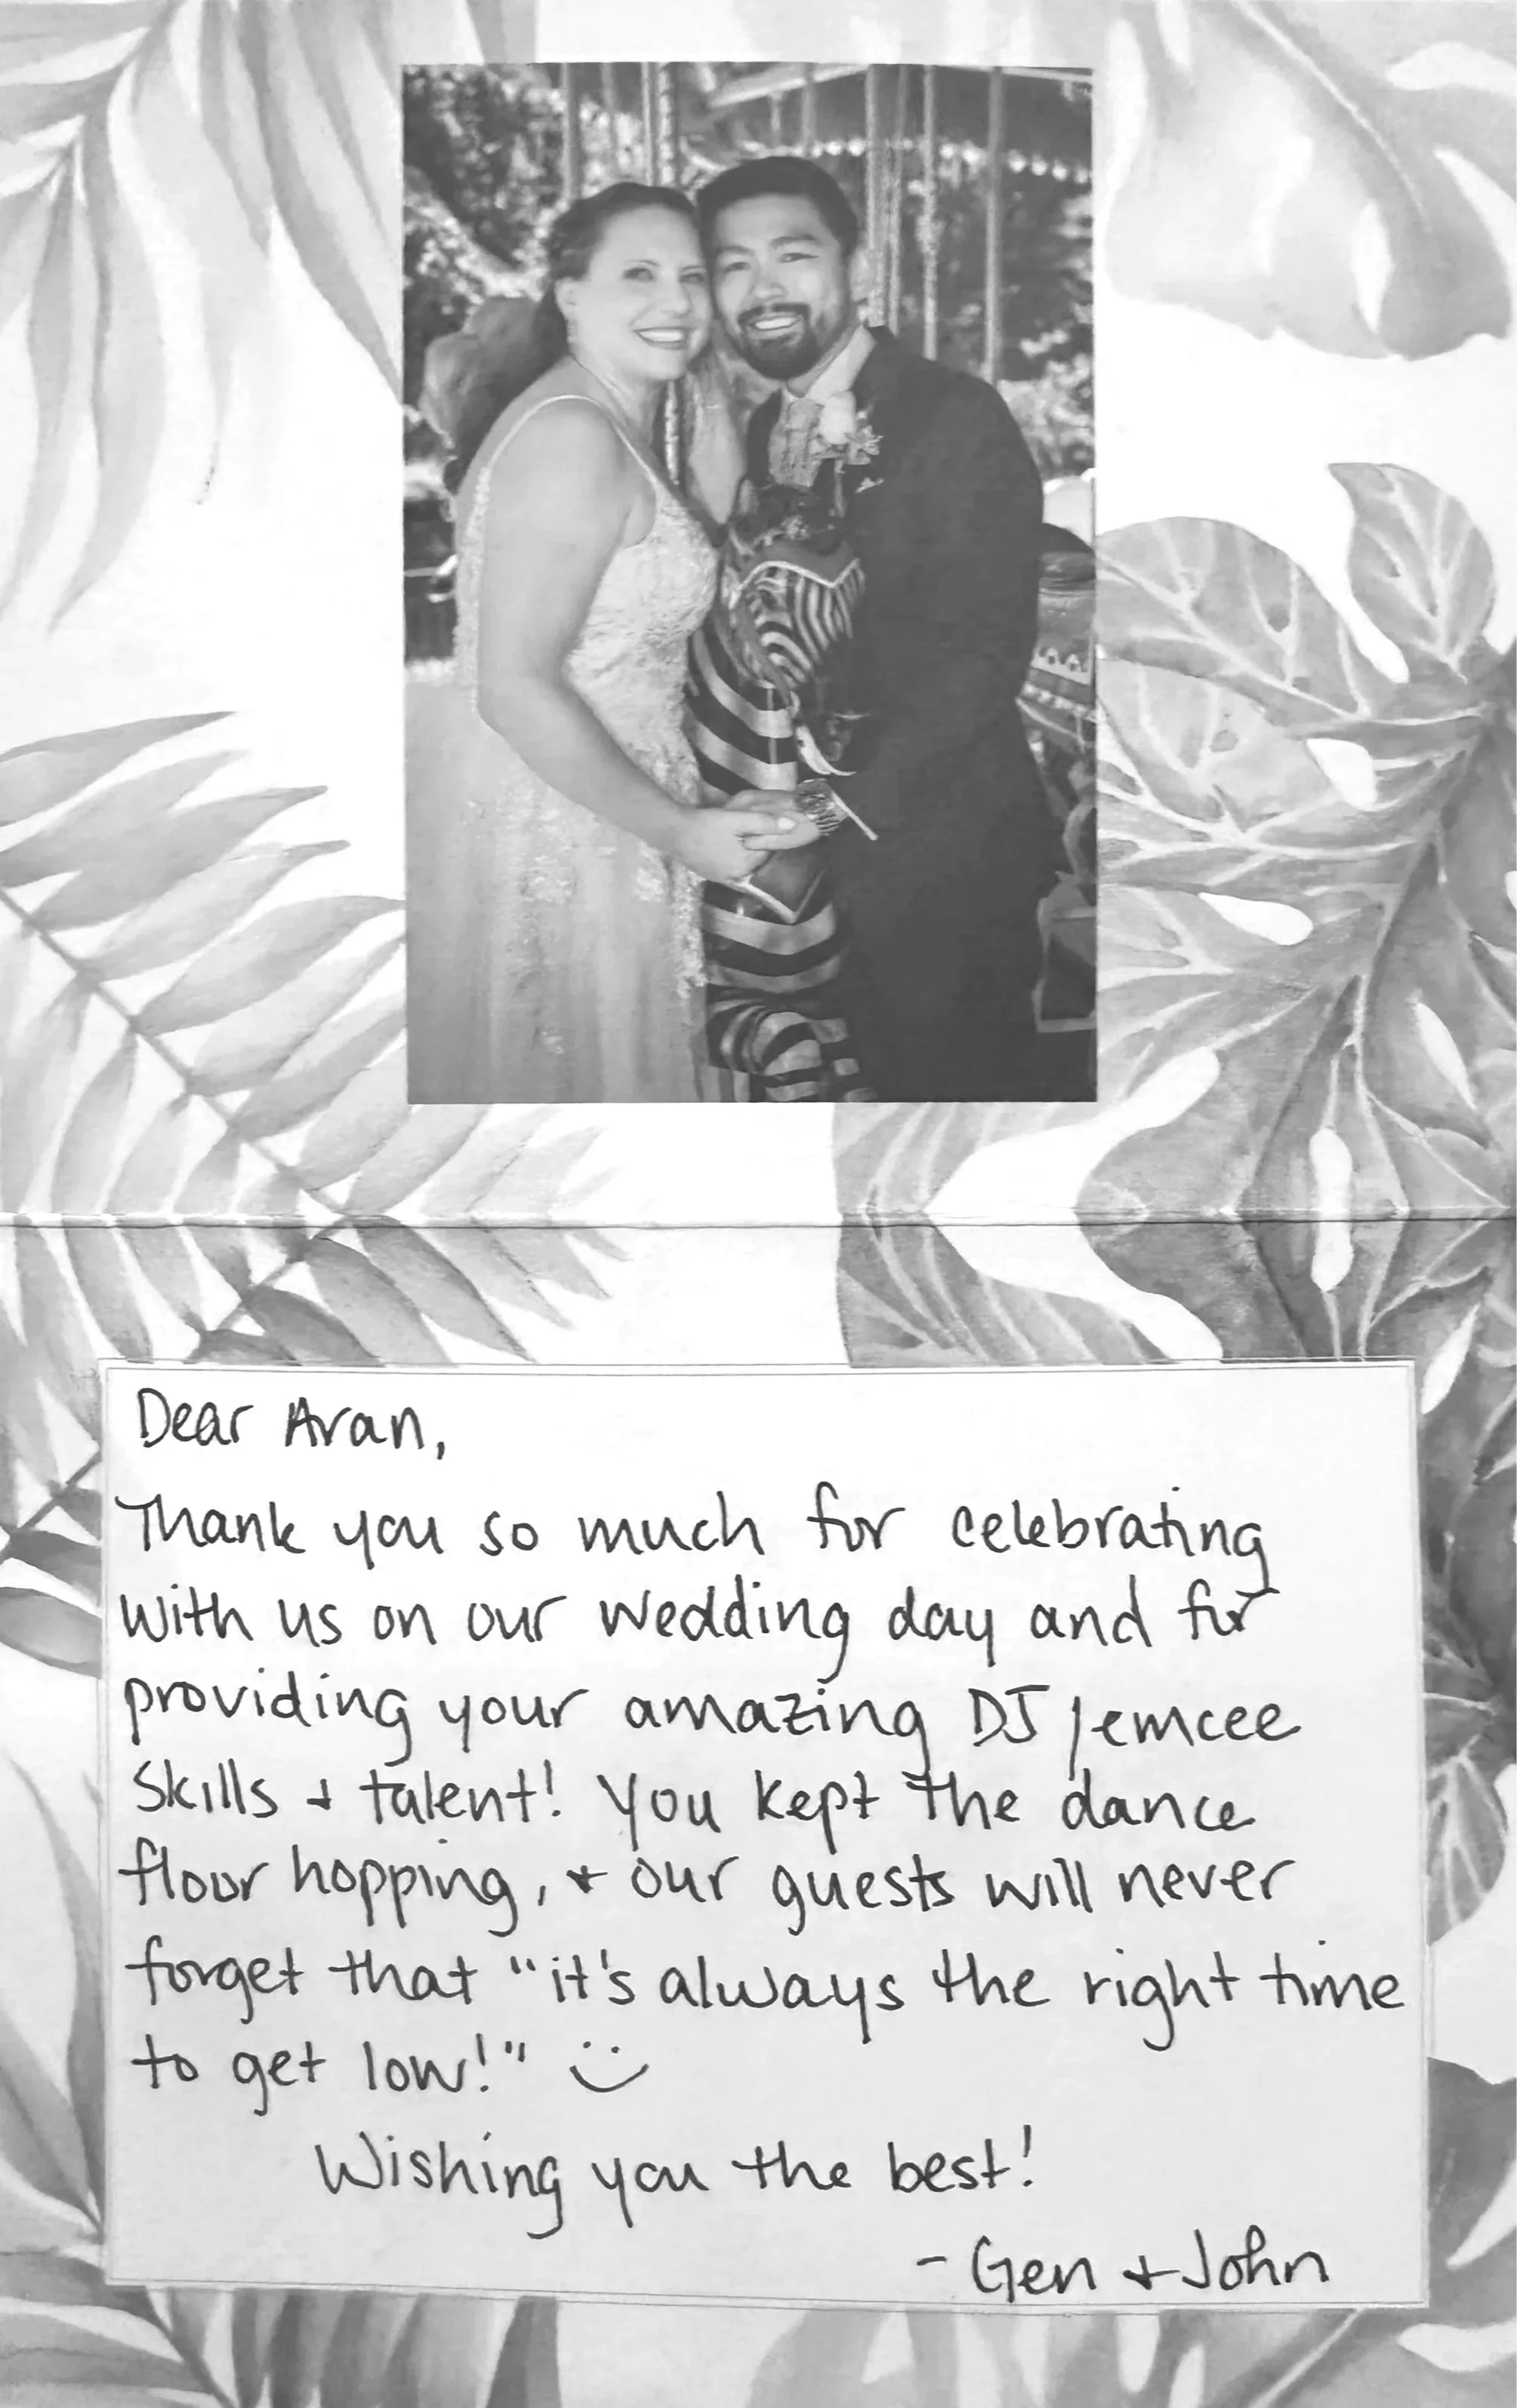 Dear Avan,
Thank you so much for celebrating
with us on our wedding day and for
providing your amazing DJ/emcee
Skills + talent! You kept the dance
floor hopping, + our guests will never
forget that "it's always the right time
to get low!" :)
Wishing you the best!
- Gen + John